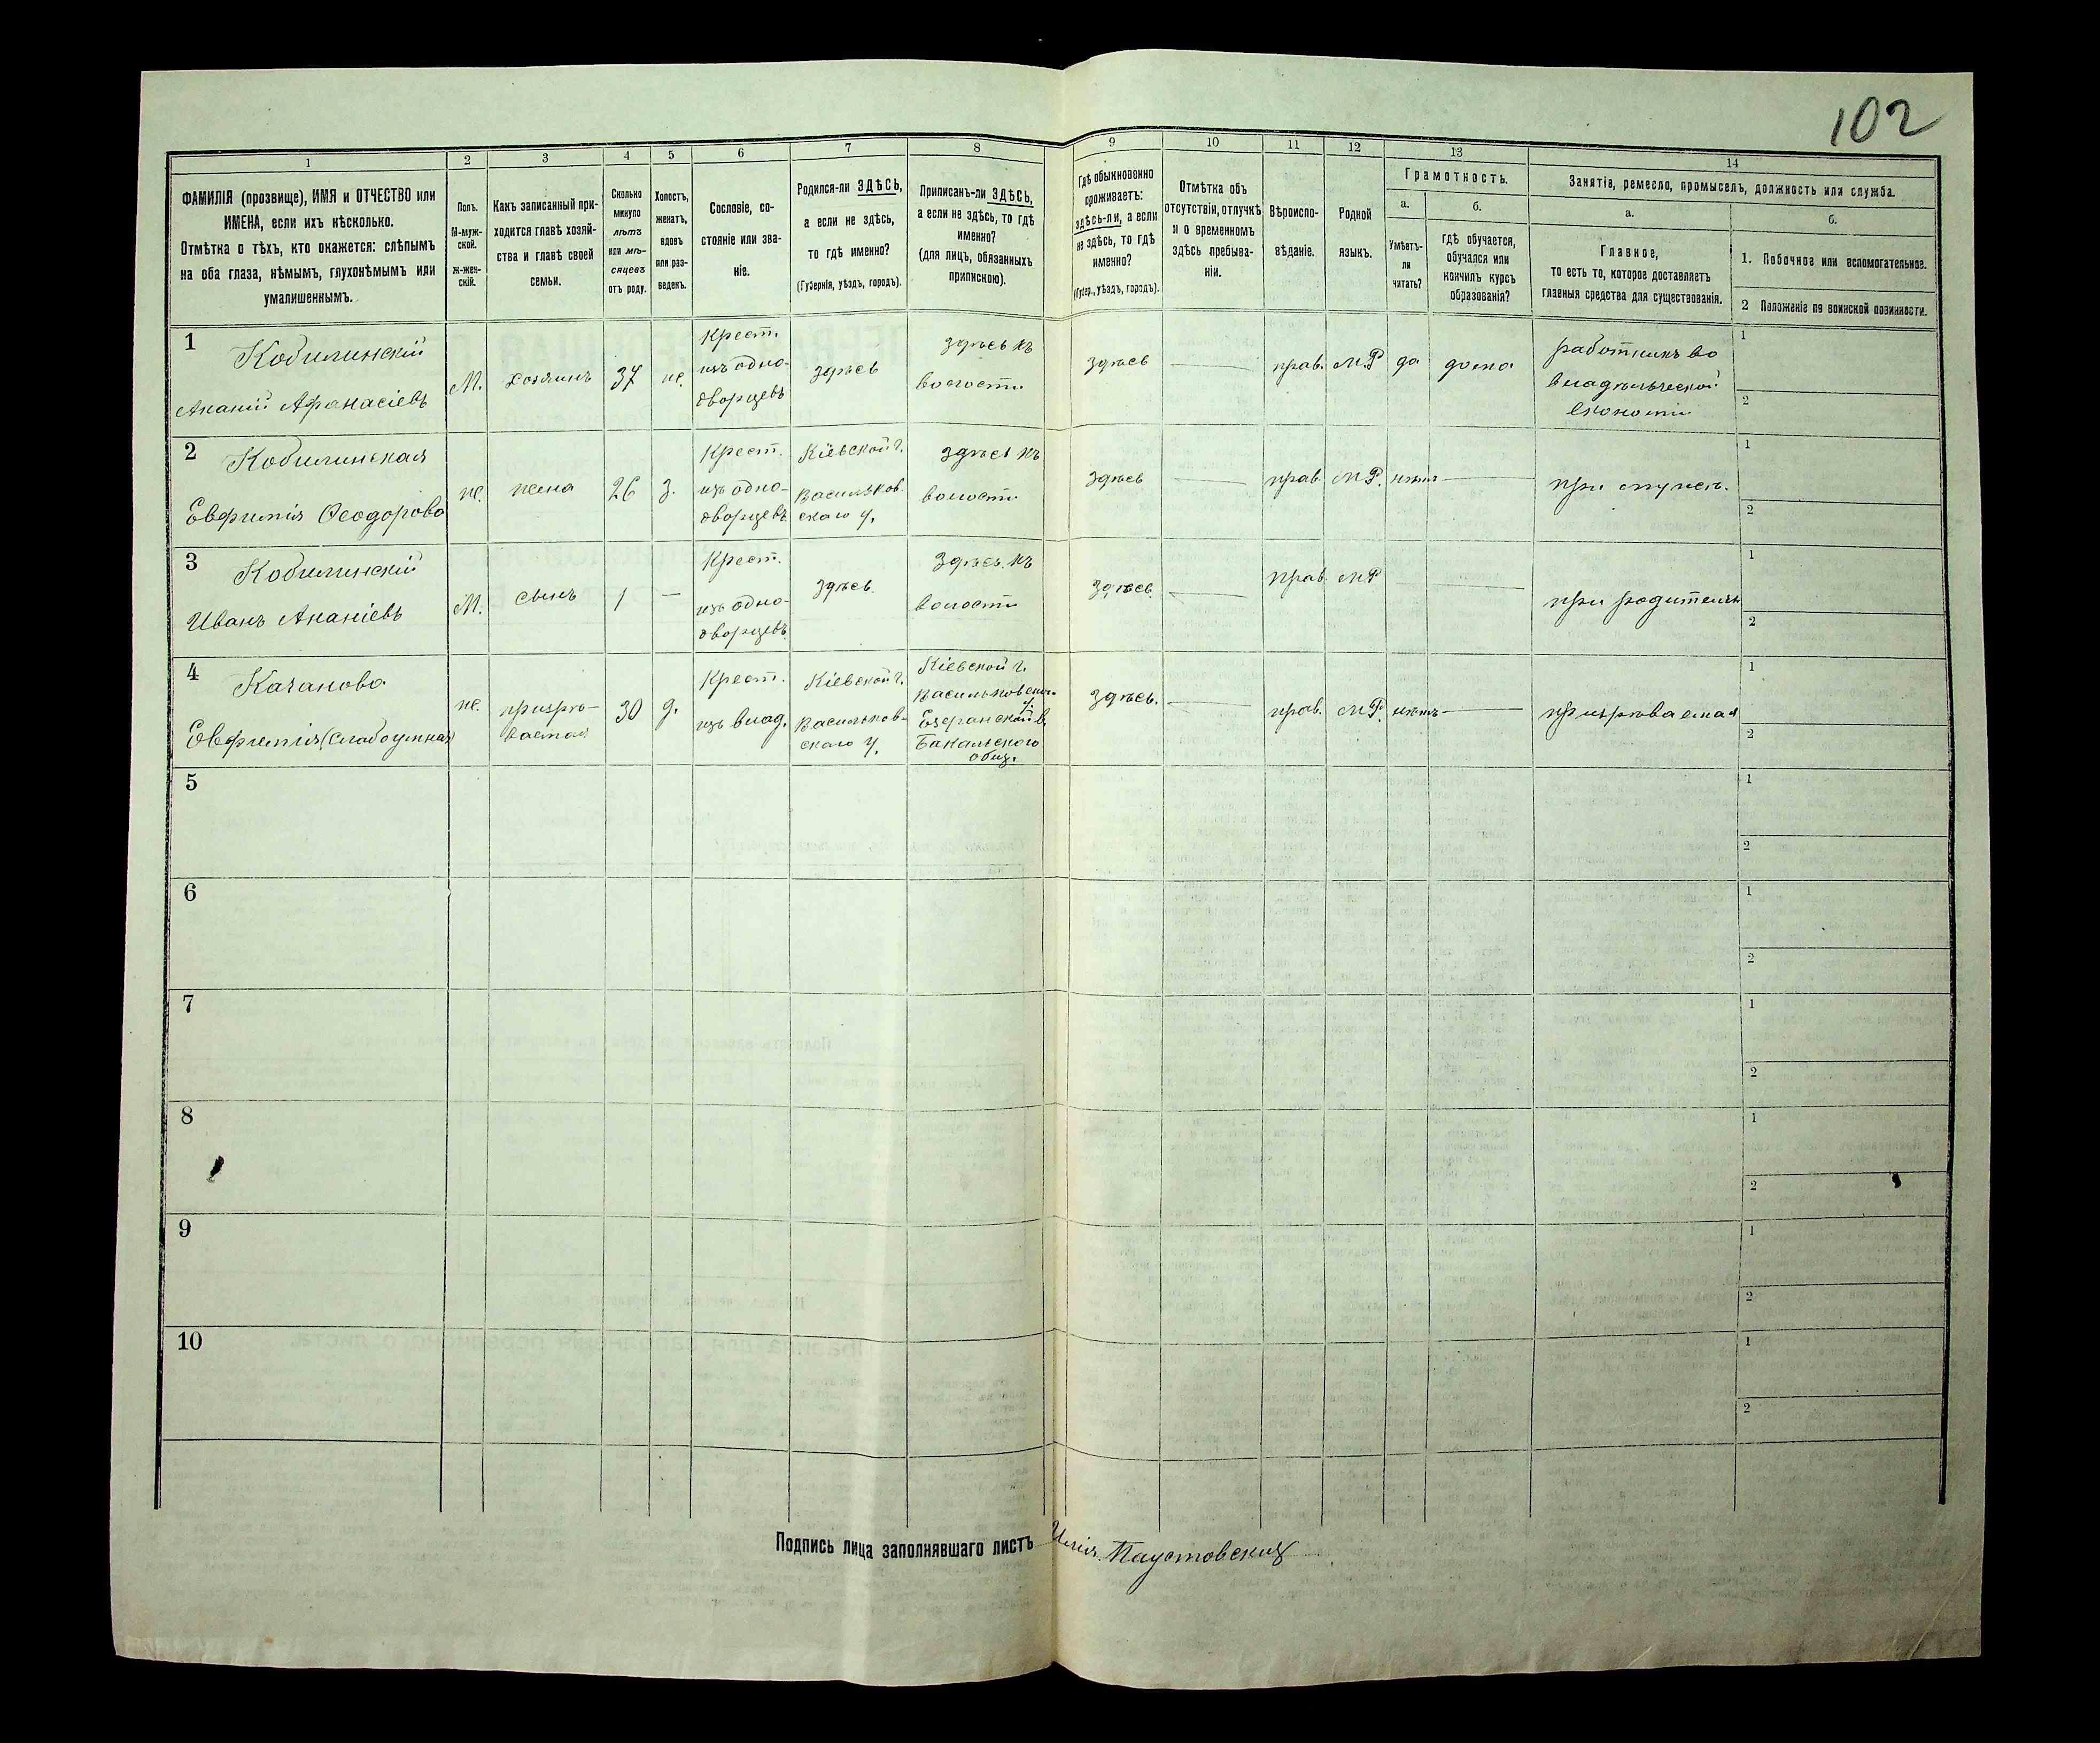 102
1 2 3 4 5 6 7 8 9 10 11 12 13 14
ФАМИЛІЯ (прозвище), ИМЯ и ОТЧЕСТВО или
ИМЕНА, если ихъ нѣсколько.
Отмѣтка о тѣхъ, кто окажется: слѣпымъ
на оба глаза, нѣмымъ, глухонѣмымъ или
умалишеннымъ.
Полъ.
М-муж-
ской.
ж-жен-
скій.
Какъ записанный при-
ходится главѣ хозяй-
ства и главѣ своей
семьи.
Сколько
минуло
лѣтъ
или мѣ-
сяцевъ
отъ роду.
Холостъ,
женатъ,
вдовъ
или раз-
веденъ.
Сословіе, со-
стояніе или зва-
ніе.
Родился-ли ЗДѢСЬ,
а если не здѣсь,
то гдѣ именно?
(Губернія, уѣздъ, городъ).
Приписанъ-ли ЗДѢСЬ,
а если не здѣсь, то гдѣ
именно?
(для лицъ, обязанныхъ
припискою).
Гдѣ обыкновенно
проживаетъ:
здѣсь-ли, а если
не здѣсь, то гдѣ
именно?
(Губер., уѣздъ, городъ).
Отмѣтка объ
отсутствіи, отлучкѣ
и о временномъ
здѣсь пребыва-
ніи.
Вѣроиспо-
вѣданіе.
Родной
языкъ.
Грамотность.
а.
Умѣетъ-
ли
читать?
б.
гдѣ обучается,
обучался или
кончилъ курсъ
образованія?
Занятіе, ремесло, промыселъ, должность или служба.
а.
Главное,
то есть то, которое доставляетъ
главныя средства для существованія.
б.
1. Побочное или вспомогательное.
2 Положеніе по воинской повинности.
1
Кобилинскій
Ананій Афанасіевъ
М.
хозяинъ
37
ж.
Крест.
изъ одно-
дворцевъ
здѣсь
здѣсь къ
волости
здѣсь
прав.
М.Р.
да
дома
работникъ во
владѣльческой
економіи
1
2
2
Кобилинская
Евфимія Феодорова
ж.
жена
26
з.
Крест.
изъ одно-
дворцевъ
Кіевской г.
Васильков-
скаго у.
здѣсь къ
волости
здѣсь
прав.
М.Р.
нѣтъ
при мужѣ.
1
2
3
Кобилинскій
Иванъ Ананіевъ
М.
сынъ
1
—
Крест.
изъ одно-
дворцевъ
здѣсь
здѣсь къ
волости
здѣсь
прав.
М.Р.
при родителяхъ
1
2
4
Качанова
Евфимія (слабоумная)
ж.
призрѣ-
ваемая
30
д.
Крест.
изъ влад.
Кіевской г.
Васильков-
скаго у.
Кіевской г.
Васильковскаго
у.
Езерянской в.
общ.
здѣсь.
прав.
М.Р.
нѣтъ
призрѣваемая
1
2
5
1
2
6
1
2
7
1
2
8
1
2
9
1
2
10
1
2
Подпись лица заполнявшаго листъ Илія Паустовскій